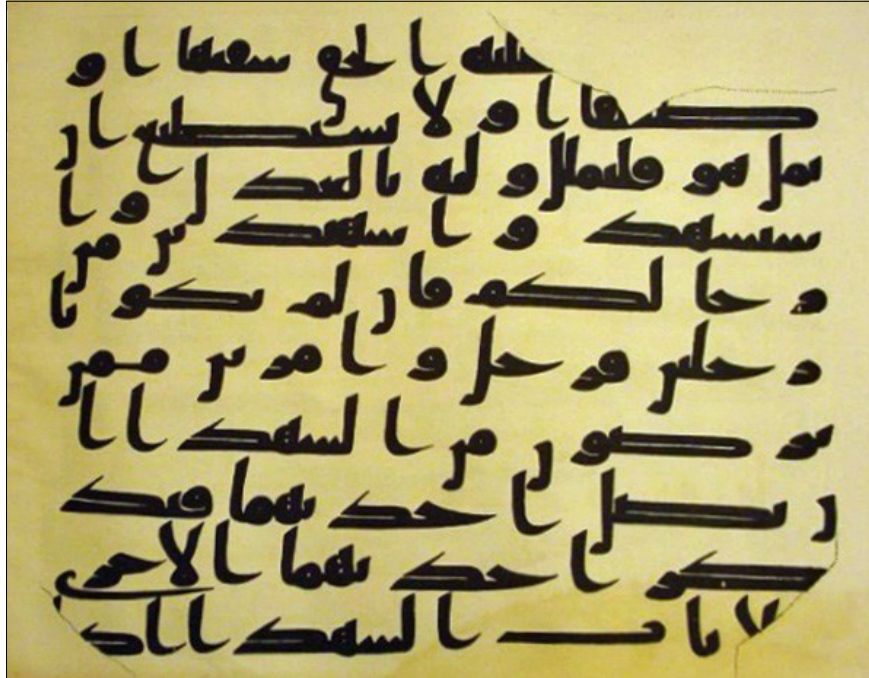 عليه الحق سفيها او
ضعيفا او لا يستطيع ان
يمل هو فليملل وليه بالعدل و ا
ستشهدوا شهيدين من
ر جا لكم فان لم يكو نا
ر جلين فر جل و ا مر تين ممن
تر ضو ن من ا لشهدا ا
ن تضل ا حديهما فتذ
كر ا حديهما ا لا خرى
لا يا ب ا لشهدا ا ذ